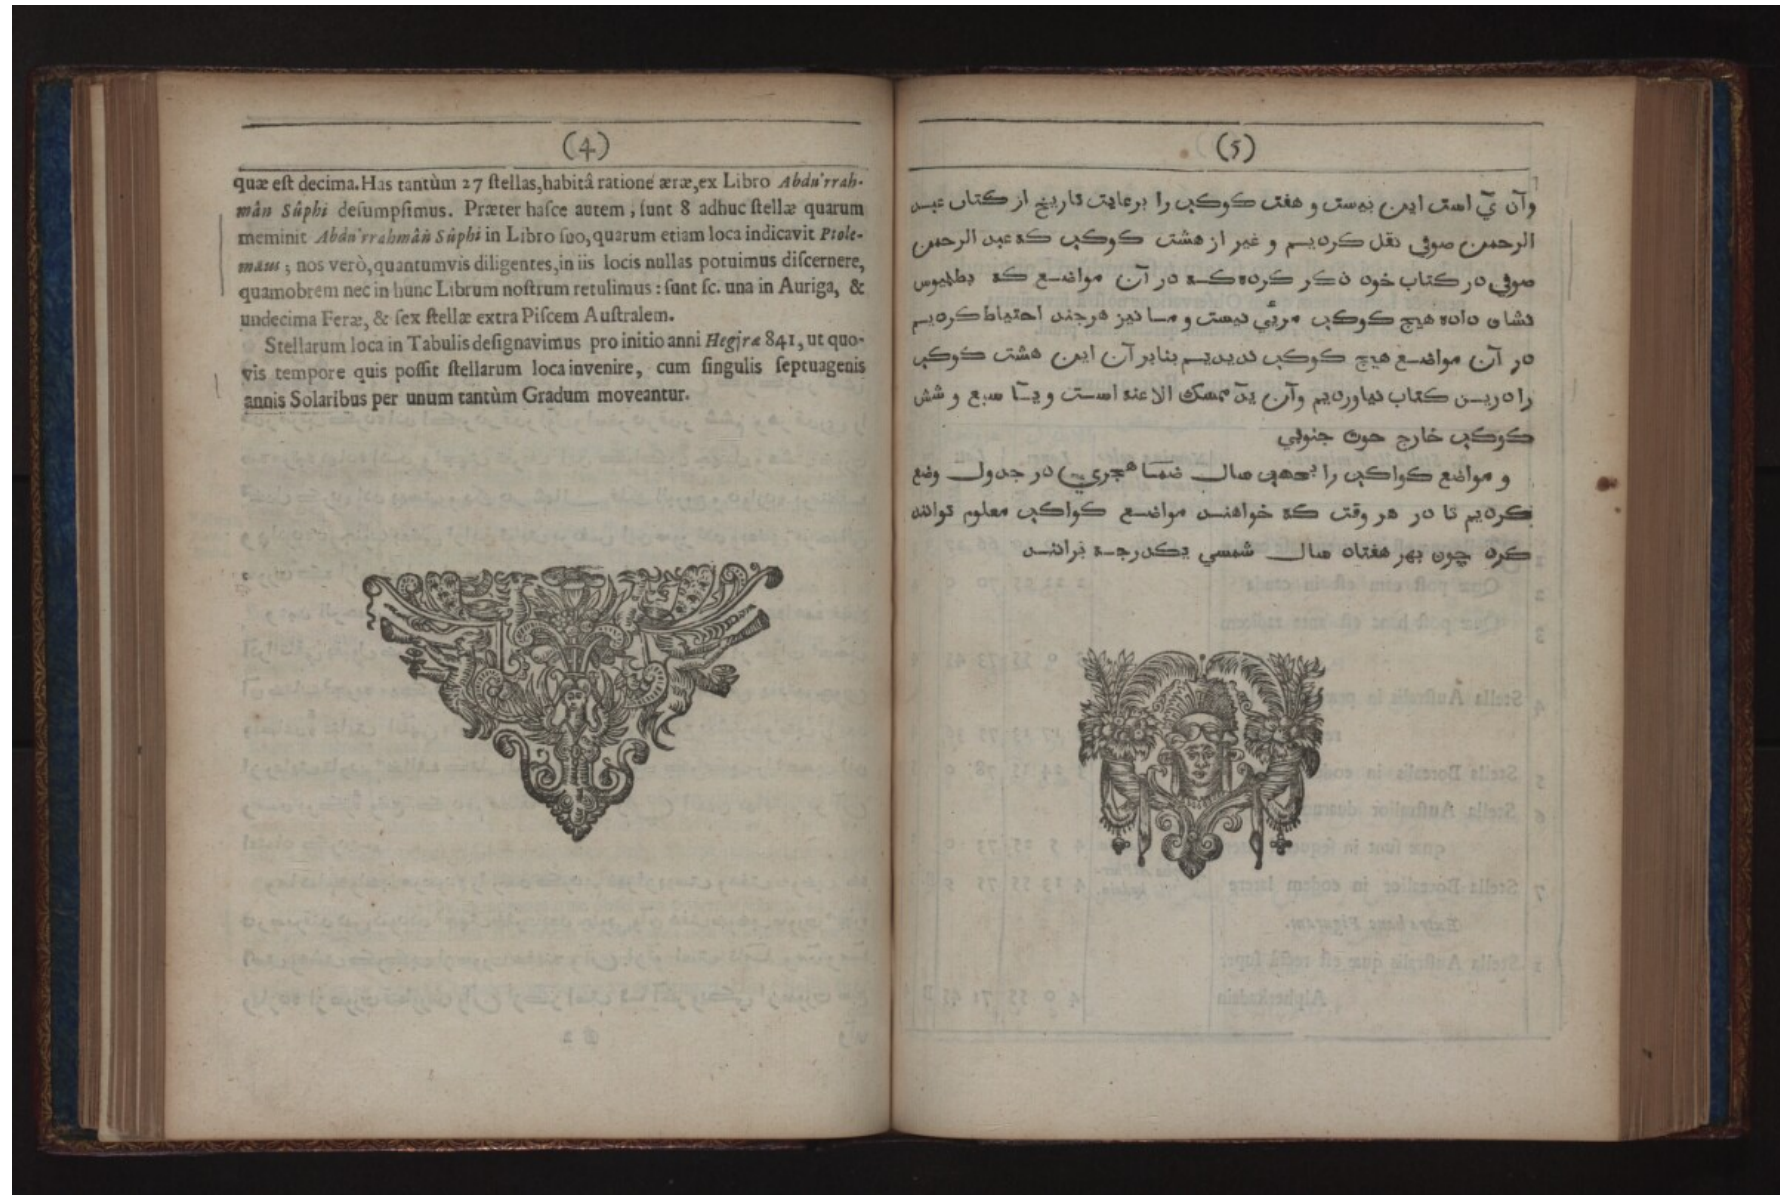 (4)
quæ est decima. Has tantùm 27 stellas, habitâ ratione æræ, ex Libro Abdu'rrah-
mân Sûphi desumpsimus. Præter hasce autem, sunt 8 adhuc stellæ quarum
meminit Abdu'rrahmân Sûphi in Libro suo, quarum etiam loca indicavit Ptole-
mæus; nos verò, quantumvis diligentes, in iis locis nullas potuimus discernere,
quamobrem nec in hunc Librum nostrum retulimus: sunt sc. una in Auriga, &
undecima Feræ, & sex stellæ extra Piscem Australem.
Stellarum loca in Tabulis designavimus pro initio anni Hegjræ 841, ut quo-
vis tempore quis possit stellarum loca invenire, cum singulis septuagenis
annis Solaribus per unum tantùm Gradum moveantur.
(5)
وآن يَ است اين بيست و هفت كوكب را برعايت تاريخ از كتاب عبد
الرحمن صوفي نقل كرديم و غير از هشت كوكب كه عبد الرحمن
صوفي در كتاب خود ذكر كرده كه در آن مواضع كه بطلميوس
نشان داده هيچ كوكب مرئي نيست و ما نيز هرچند احتياط كرديم
در آن مواضع هيچ كوكب نديديم بنابر آن اين هشت كوكب
را درين كتاب نياورديم وآن يد ممسك الاعنه است و يا سبع و شش
كوكب خارج حوت جنوبي
و مواضع كواكب را سال ضما هجري در جدول وضع
كرديم تا در هر وقت كه خواهند مواضع كواكب معلوم توانند
كرد چون بهر هفتاد سال شمسي يكدرجه